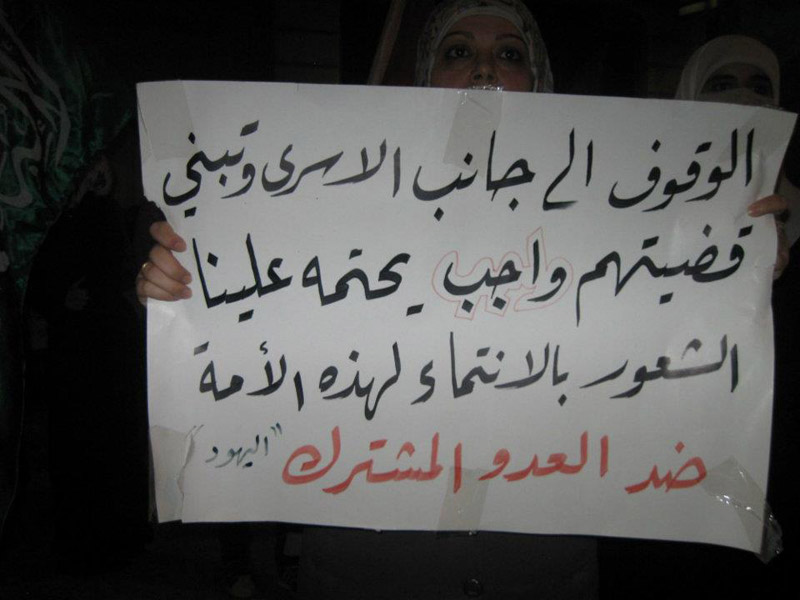 الوقوف الى جانب الاسرى وتبني
قضيتهم واجب يحتمه علينا
الشعور بالانتماء لهذه الأمة
ضد العدو المشترك "اليهود"